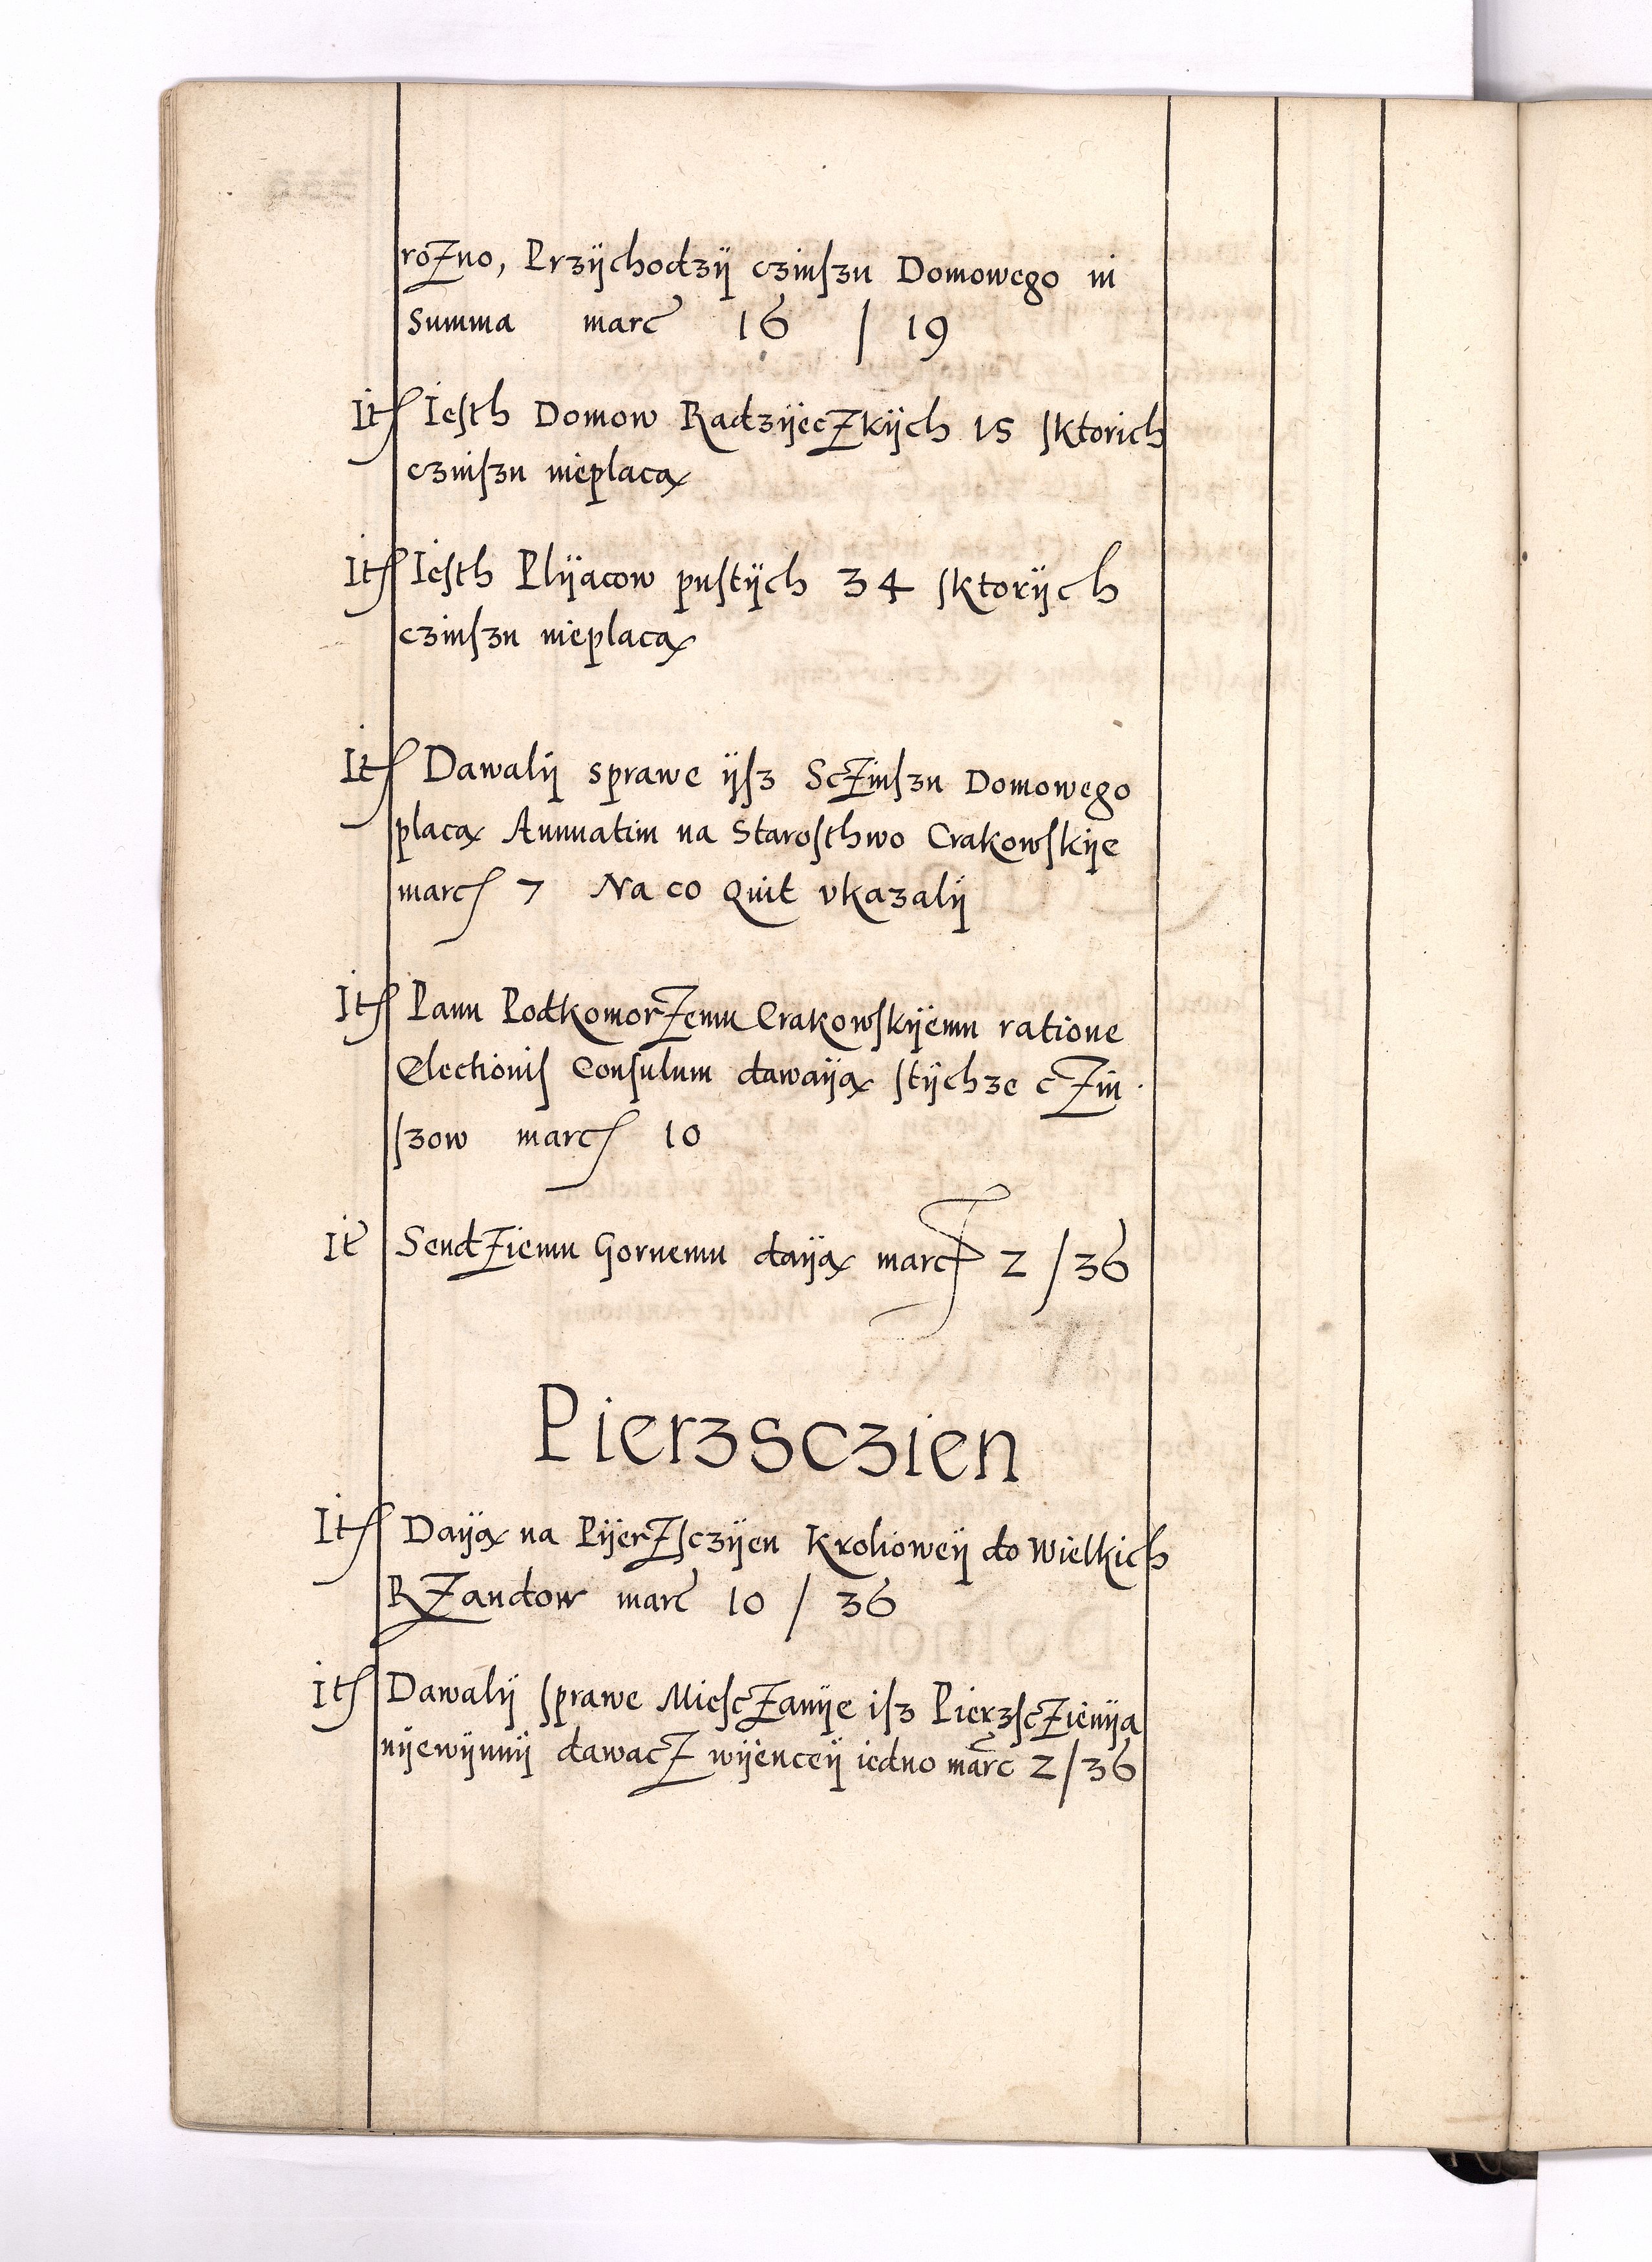 roZno, Przÿchodzÿ czinſzu Domowego in
Summa marc 16 / 19
It Ieſth Domow RadzÿecZkÿch 15 ſktorich
czinſzu nieplacą
It Ieſth Plÿacow puſtÿch 34 ſktorÿch
czinſzu nieplacą
It Dawalÿ sprawe ÿſz ScZinſzu Domowego
placą Annuatim na Staroſthwo Crakowſkÿe
marc 7 Na co Quit vkazalÿ
It Panu PodkomorZemu Crakowſkÿemu ratione
Electioniſ Conſulum dawaÿą ſtÿchze cZin
ſzow marc 10
It SendZiemu Gornemu daÿą marc 2 / 36
Pierzsczien
It Daÿą na PÿerZſczÿen Krolioweÿ do Wielkich
RZandow marc 10 / 36
It Dawalÿ ſprawe MieſcZanÿe iſz PierzſcZienÿa
nÿewÿnnÿ dawacZ wÿenceÿ iedno marc 2 / 36